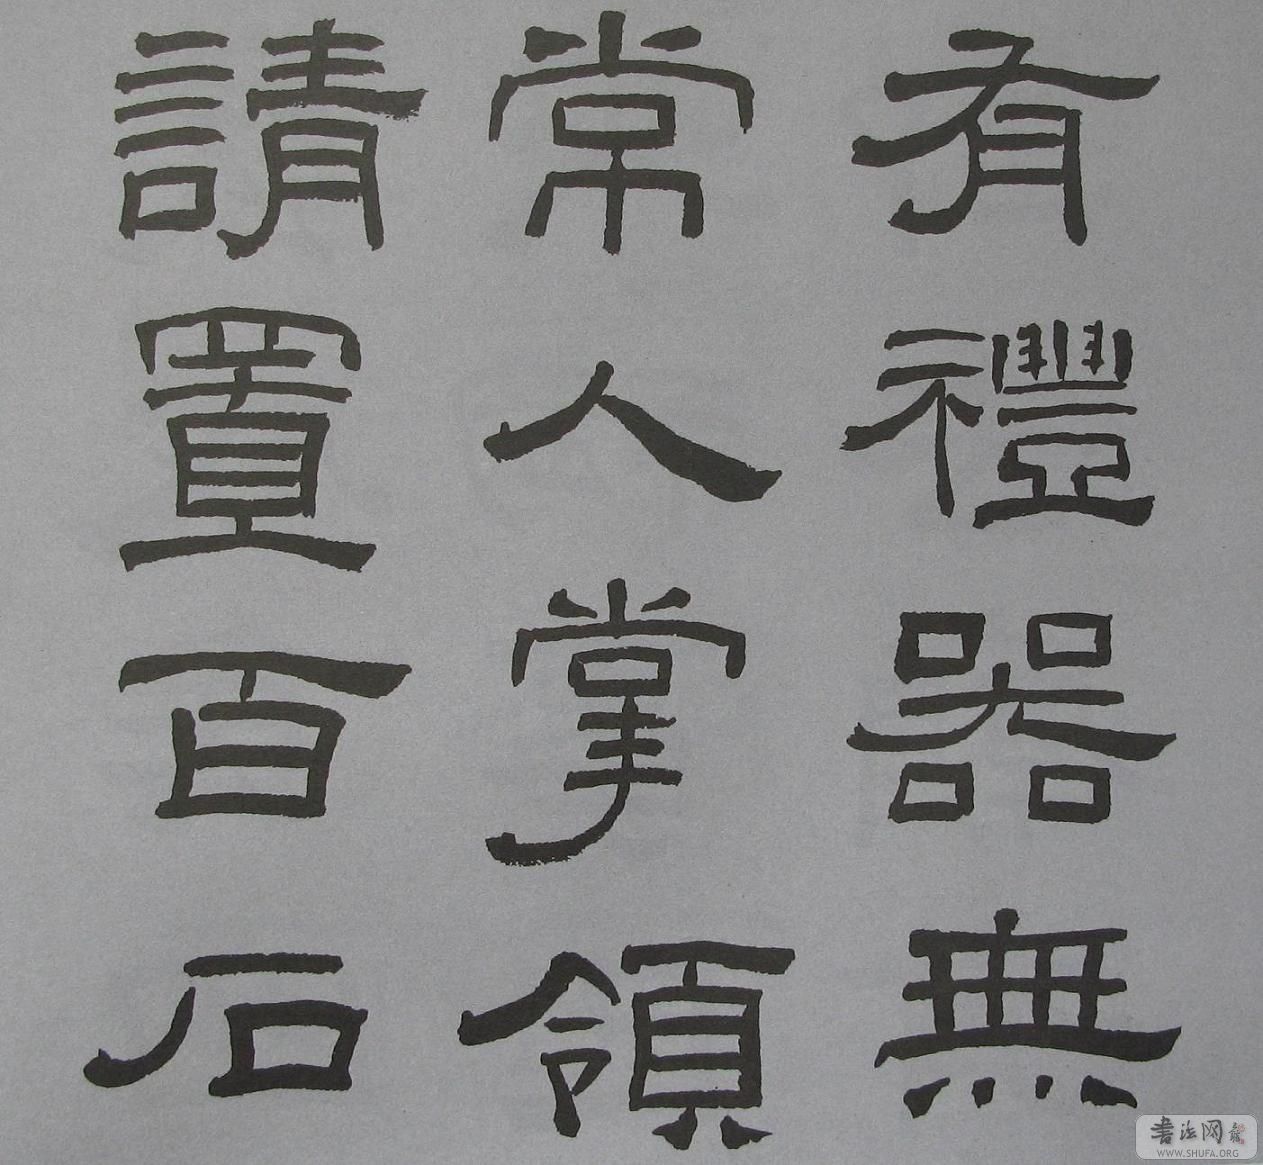 有禮器無
常人掌領
請置百石
书法网
WWW.SHUFA.ORG